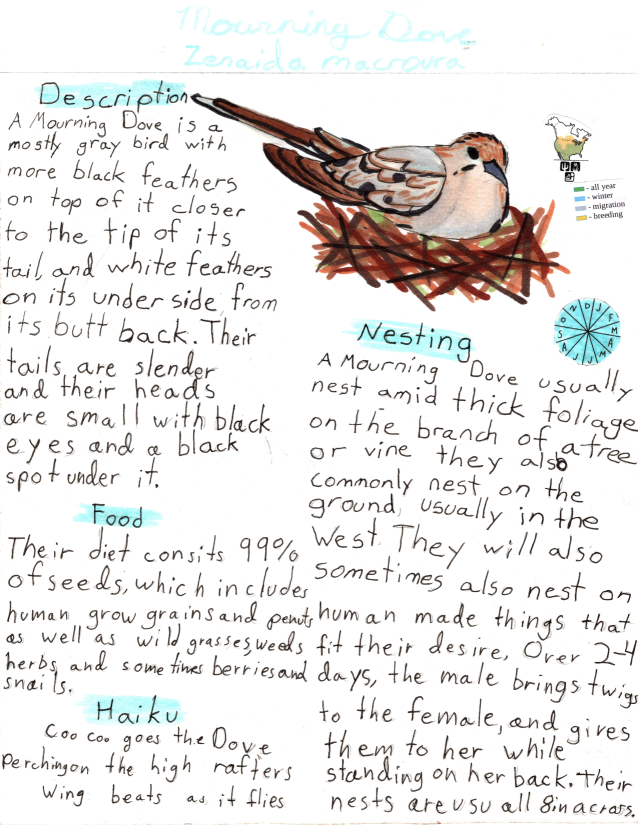 Mourning Dove
Zenaida macroura
Description
A Mourning Dove is a
mostly gray bird with
more black feathers
on top of it closer
to the tip of its
tail, and white feathers
on its under side from
its butt back. Their
tails are slender
and their heads
are small with black
eyes and a black
spot under it.
Food
Their diet consits 99%
of seeds, which includes
human grow grains and penuts
as well as wild grasses, weeds
herbs, and some times berries and
snails.
Haiku
Coo coo goes the Dove
Perching on the high rafters
Wing beats as it flies
- all year
- winter
- migration
- breeding
J F M A M J J A S O N D
Nesting
A Mourning Dove usually
nest amid thick foliage
on the branch of a tree
or vine they also
commonly nest on the
ground, usually in the
West. They will also
sometimes also nest on
human made things that
fit their desire. Over 2-4
days, the male brings twigs
to the female, and gives
them to her while
standing on her back. Their
nests are usu all 8in across.